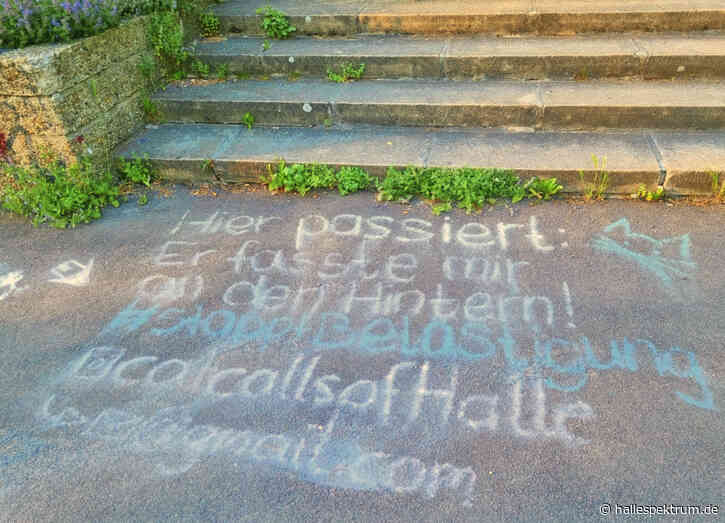 Hier passiert:
Er fasste mir
an den Hintern!
#stopptBelästigung
catcallsofHalle
@gmail.com
© hallespektrum.de